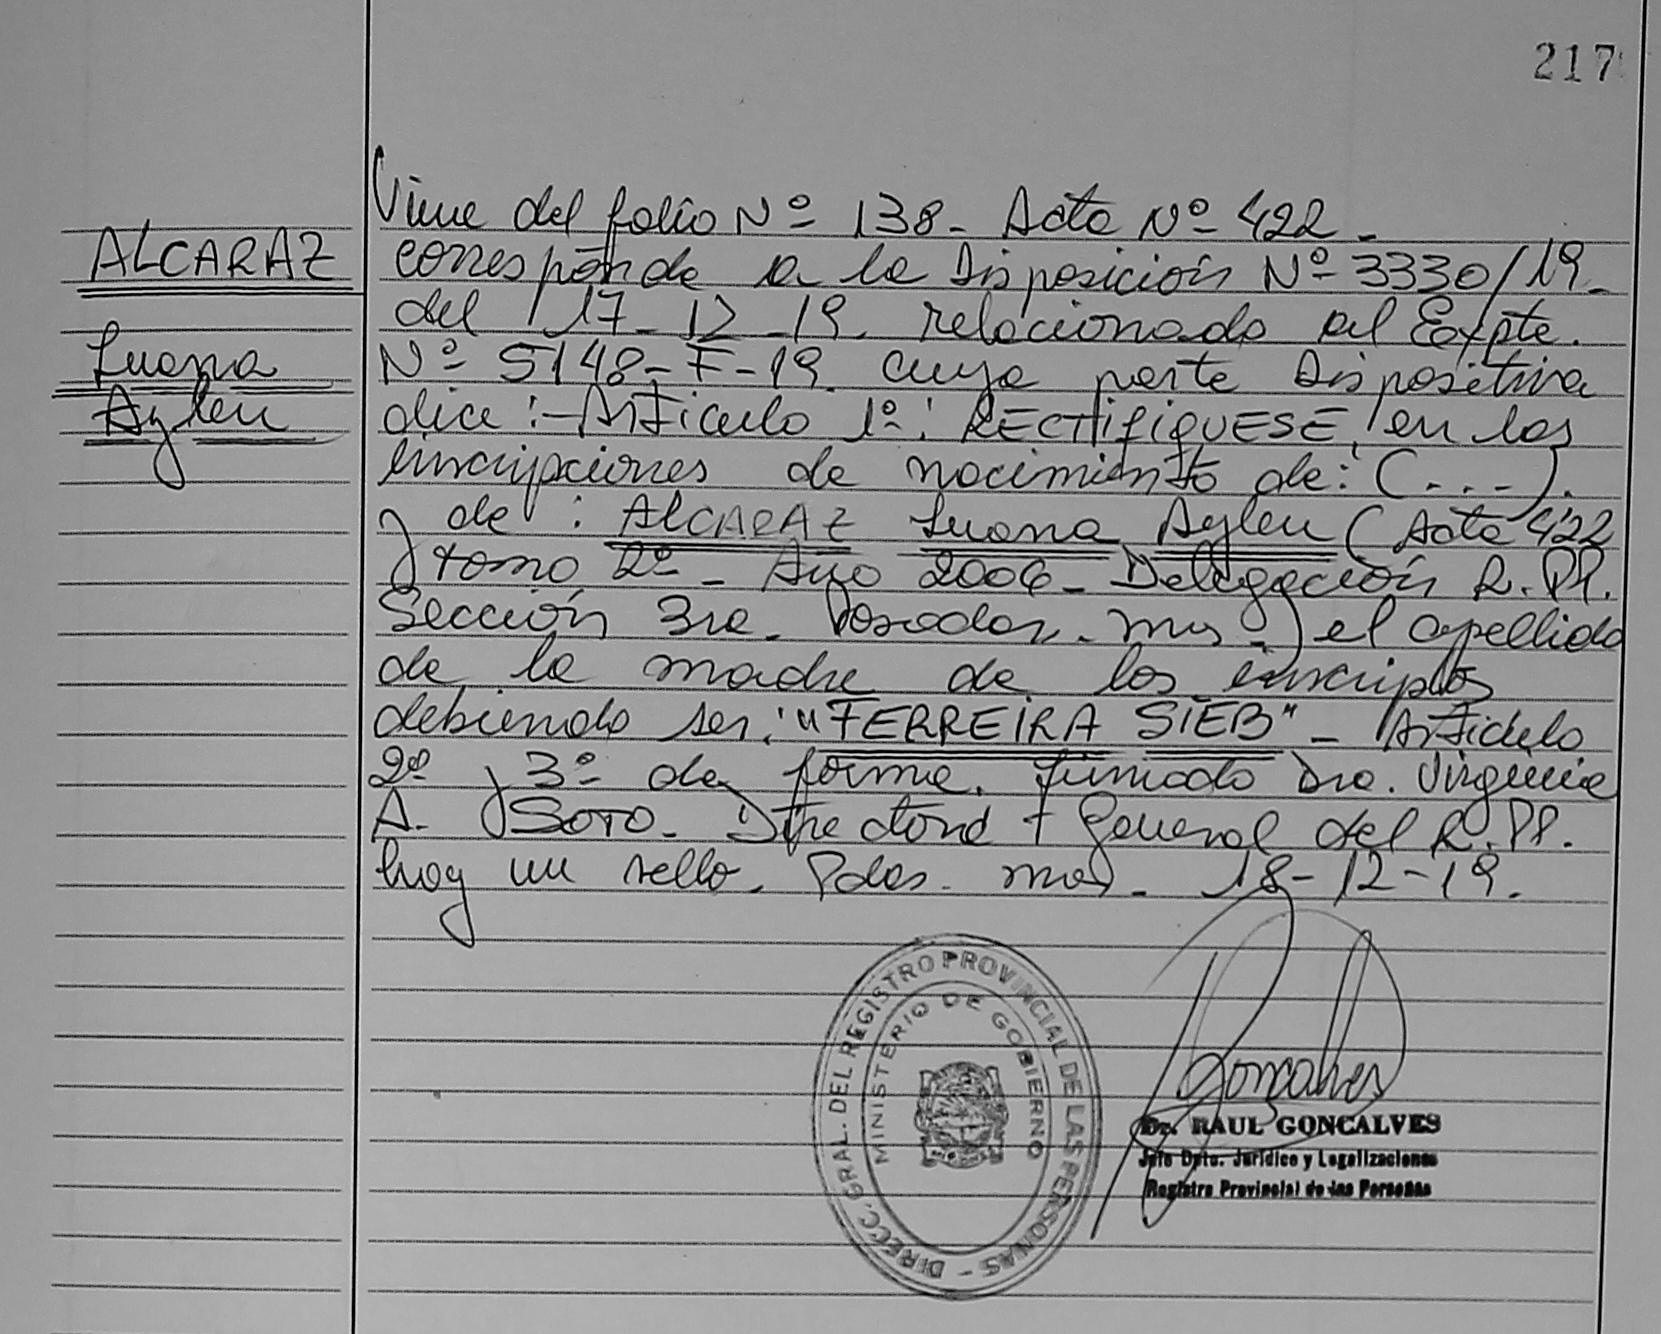 217
ALCARAZ
Luana
Aylen
Viene del folio Nº 138- Acta Nº 422-
corresponde a la Disposición Nº 3330/19-
del 17-12-19. relacionado al Expte.
Nº 5148-F-19. cuya parte Dispositiva
dice:- Articulo 1º: RECTIFIQUESE, en las
inscripciones de nacimiento de: (...).
y de: ALCARAZ Luana Aylen (Acta 422
tomo 2º - Año 2006- Delegación R.PP.
Sección 3ra. Posadas. Mns-) el apellido
de la madre de los inscriptos
debiendo ser: "FERREIRA SIEB" - Articulo
2º y 3º de forma. firmado Dra. Virginia
A. SOTO- Directora General del R.PP.
hay un sello. Pdas. Mns. 18-12-19.
DIRECC. GRAL. DEL REGISTRO PROVINCIAL DE LAS PERSONAS -
MINISTERIO DE GOBIERNO
Goncalves
Dr. RAUL GONCALVES
Jefe Dpto. Jurídico y Legalizaciones
Registro Provincial de las Personas